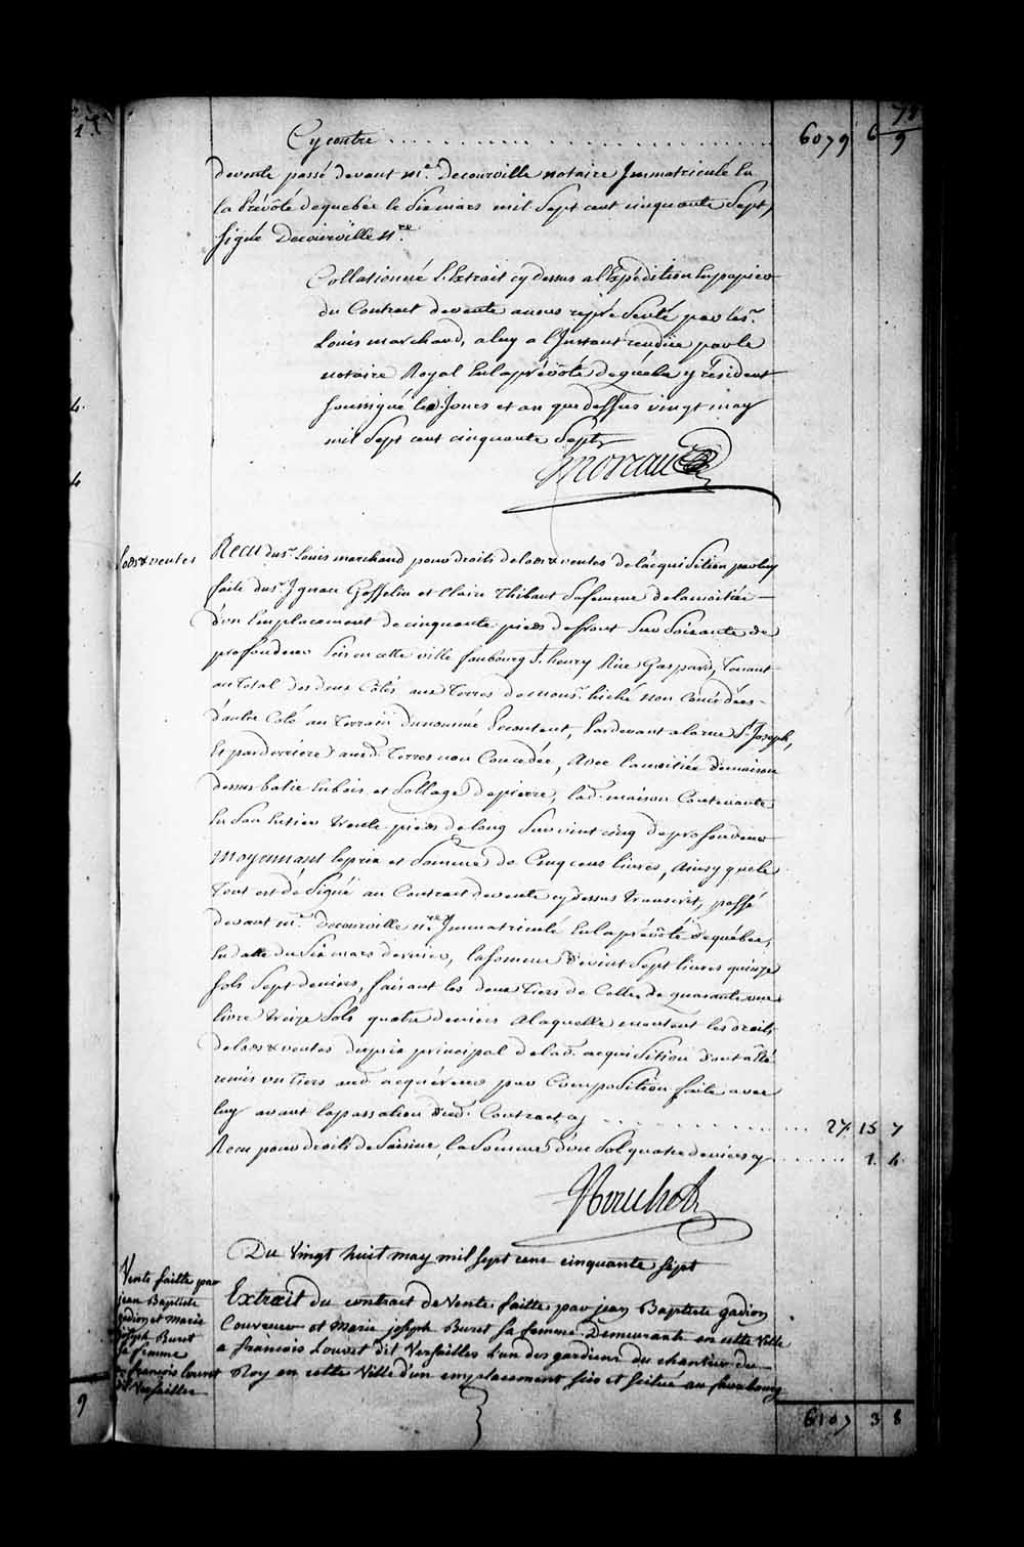 Cy contre . . . . . . . . . . . . 6079 6 9
devente passé devant Me. Decourville notaire Jmmatriculé En
la Prévôté dequebec le Six mars mil Sept cent cinquante Sept,
signé Decourville Nre.
Collationné L'Extrait cy dessus a l'Expédition En papier
du Contract devente anous représenté par les r.
Louis marchand, a luy a l'Jnstant rendüe par le
notaire Royal En la prévôté de quebec y résident
soussigné les Jours et an que dessus vingt may
mil Sept cent cinquante Sept
Moreau
Lods & ventes
Recu du Sr. Louis marchand pour droits de lods & ventes de l'acquisition par luy
faite du Sr. Jgnace Gosselin et Claire Thibaut Sa femme de la moitiée
d'un Emplacement de cinquante pieds de front Sur Soixante de
profondeur Sis en cette ville faubourg St. henry Rüe Gaspard, Tenant
au total des deux Côtés aux Terres de Mons. hiché non Concédées
d'autre Coté au Terrain du nommé Ecoutent, Pardevant a la rue St. Joseph,
Et par derriere aud. Terres non Concédée, Avec la moitiée d'maison
dessus batie En bois et Sollage de pierre, lad. maison Contenante
En Son Entier trente pieds de long Sur vint cinq de profondeur
Moyennant le prix et Somme de Cinq cens livres, Ainsy que le
tout est désigné au Contract devente cy dessus transcrit, passé
devant Me. Decourville Nre. Jmmatriculé En la prévôté de quebec,
En datte du Six mars dernier, la Somme de vint Sept livres quinze
sols Sept deniers, faisant les deux Tiers de Celle de quarante une
livre treize Sols quatre deniers A laquelle montent les droits
de lods & ventes du prix principal de lad. acquisition dont a été
remis un Tiers aud. acquéreur par Composition faite avec
luy avant la passation dud. Contract, cy . . . . . . 27 15 7
Recu pour droits de Saisine, la Somme d'un Sol quatre deniers cy . . . . . 1. 4.
Nouchet
Du vingt huit may mil sept cens cinquante sept
Vente faitte par
jean Baptiste
gadion et Marie
joseph Buret
sa femme
a françois Louvet
dit Versailles
Extrait du contract de Vente faitte par jean Baptiste gadion
Couvreur et Marie joseph Buret sa femme Demeurante en cette Ville
a françois Louvet dit Versailles l'un des gardiens du chantier du
Roy en cette Ville d'un emplacement sis et scitué au fauxbourg
9
6107 3 8